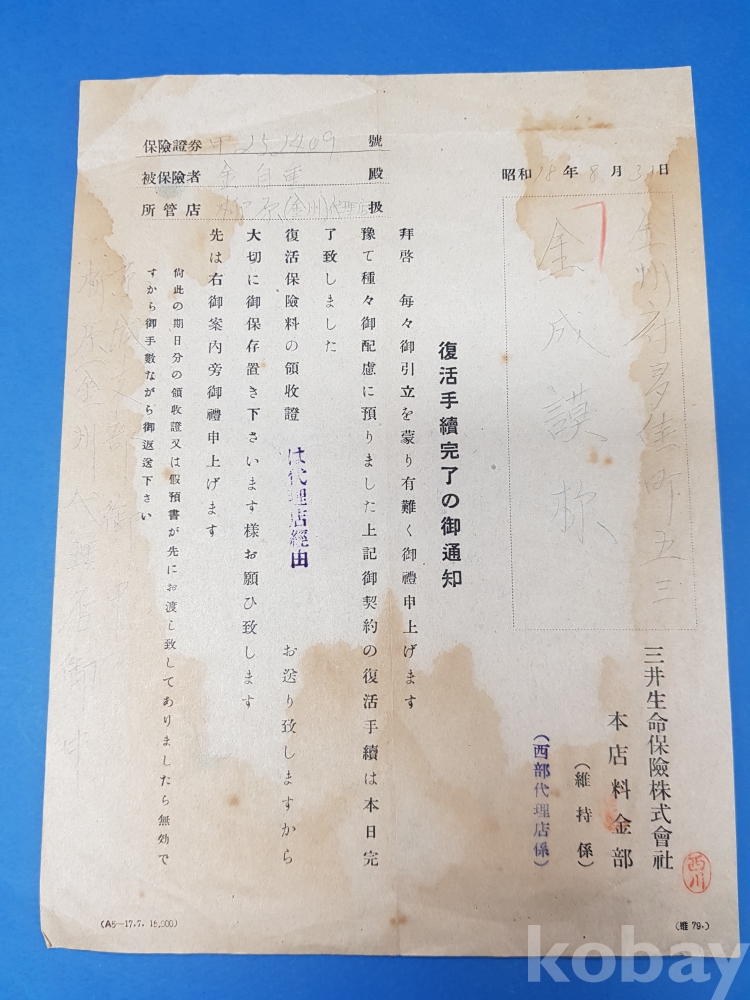 保險證券 甲 251409 號
被保險者 金 自 重 殿
所管店 (金州)代理店 扱
昭和 18 年 8 月 31 日
府多佳町五三
金成謨
三井生命保險株式會社
本店料金部
(維持係)
(西部代理店係)
西川
復活手續完了の御通知
拜啓 每々御引立を蒙り有難く御禮申上げます
豫て種々御配慮に預りました上記御契約の復活手續は本日完
了致しました
復活保險料の領收證 は代理店經由 お送り致しますから
大切に御保存置き下さいます樣お願ひ致します
先は右御案內旁御禮申上げます
尙此の期日分の領收證又は假預書が先にお渡し致してありましたら無効で
すから御手數ながら御返送下さい
(A5—17.7. 15,000)
(維 79.)
kobay